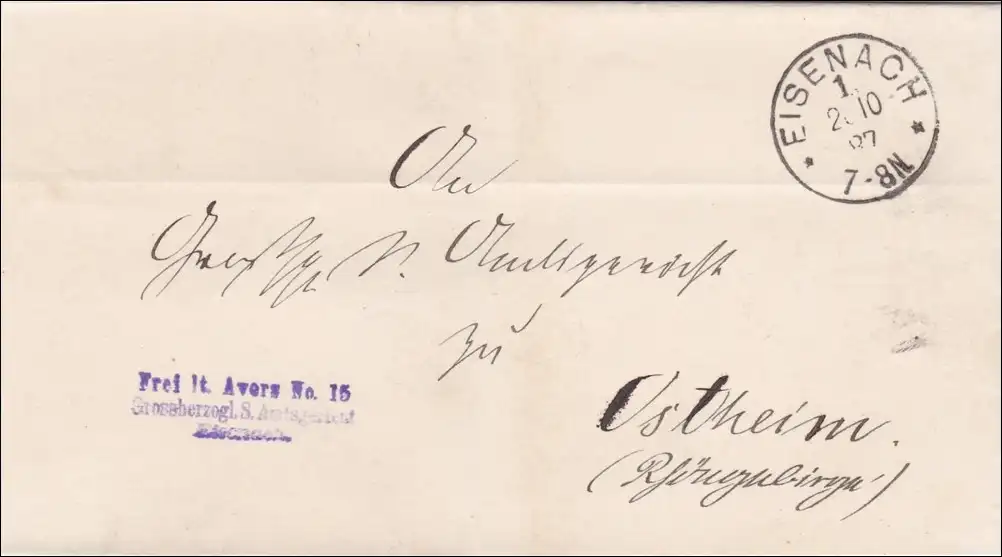 EISENACH
1.
2. 10
87
7-8N
An
Grossh. S. Amtsgericht
zu
Frei lt. Avers No. 15
Grossherzogl. S. Amtsgericht
Eisenach.
Ostheim.
(Rhöngebirge)